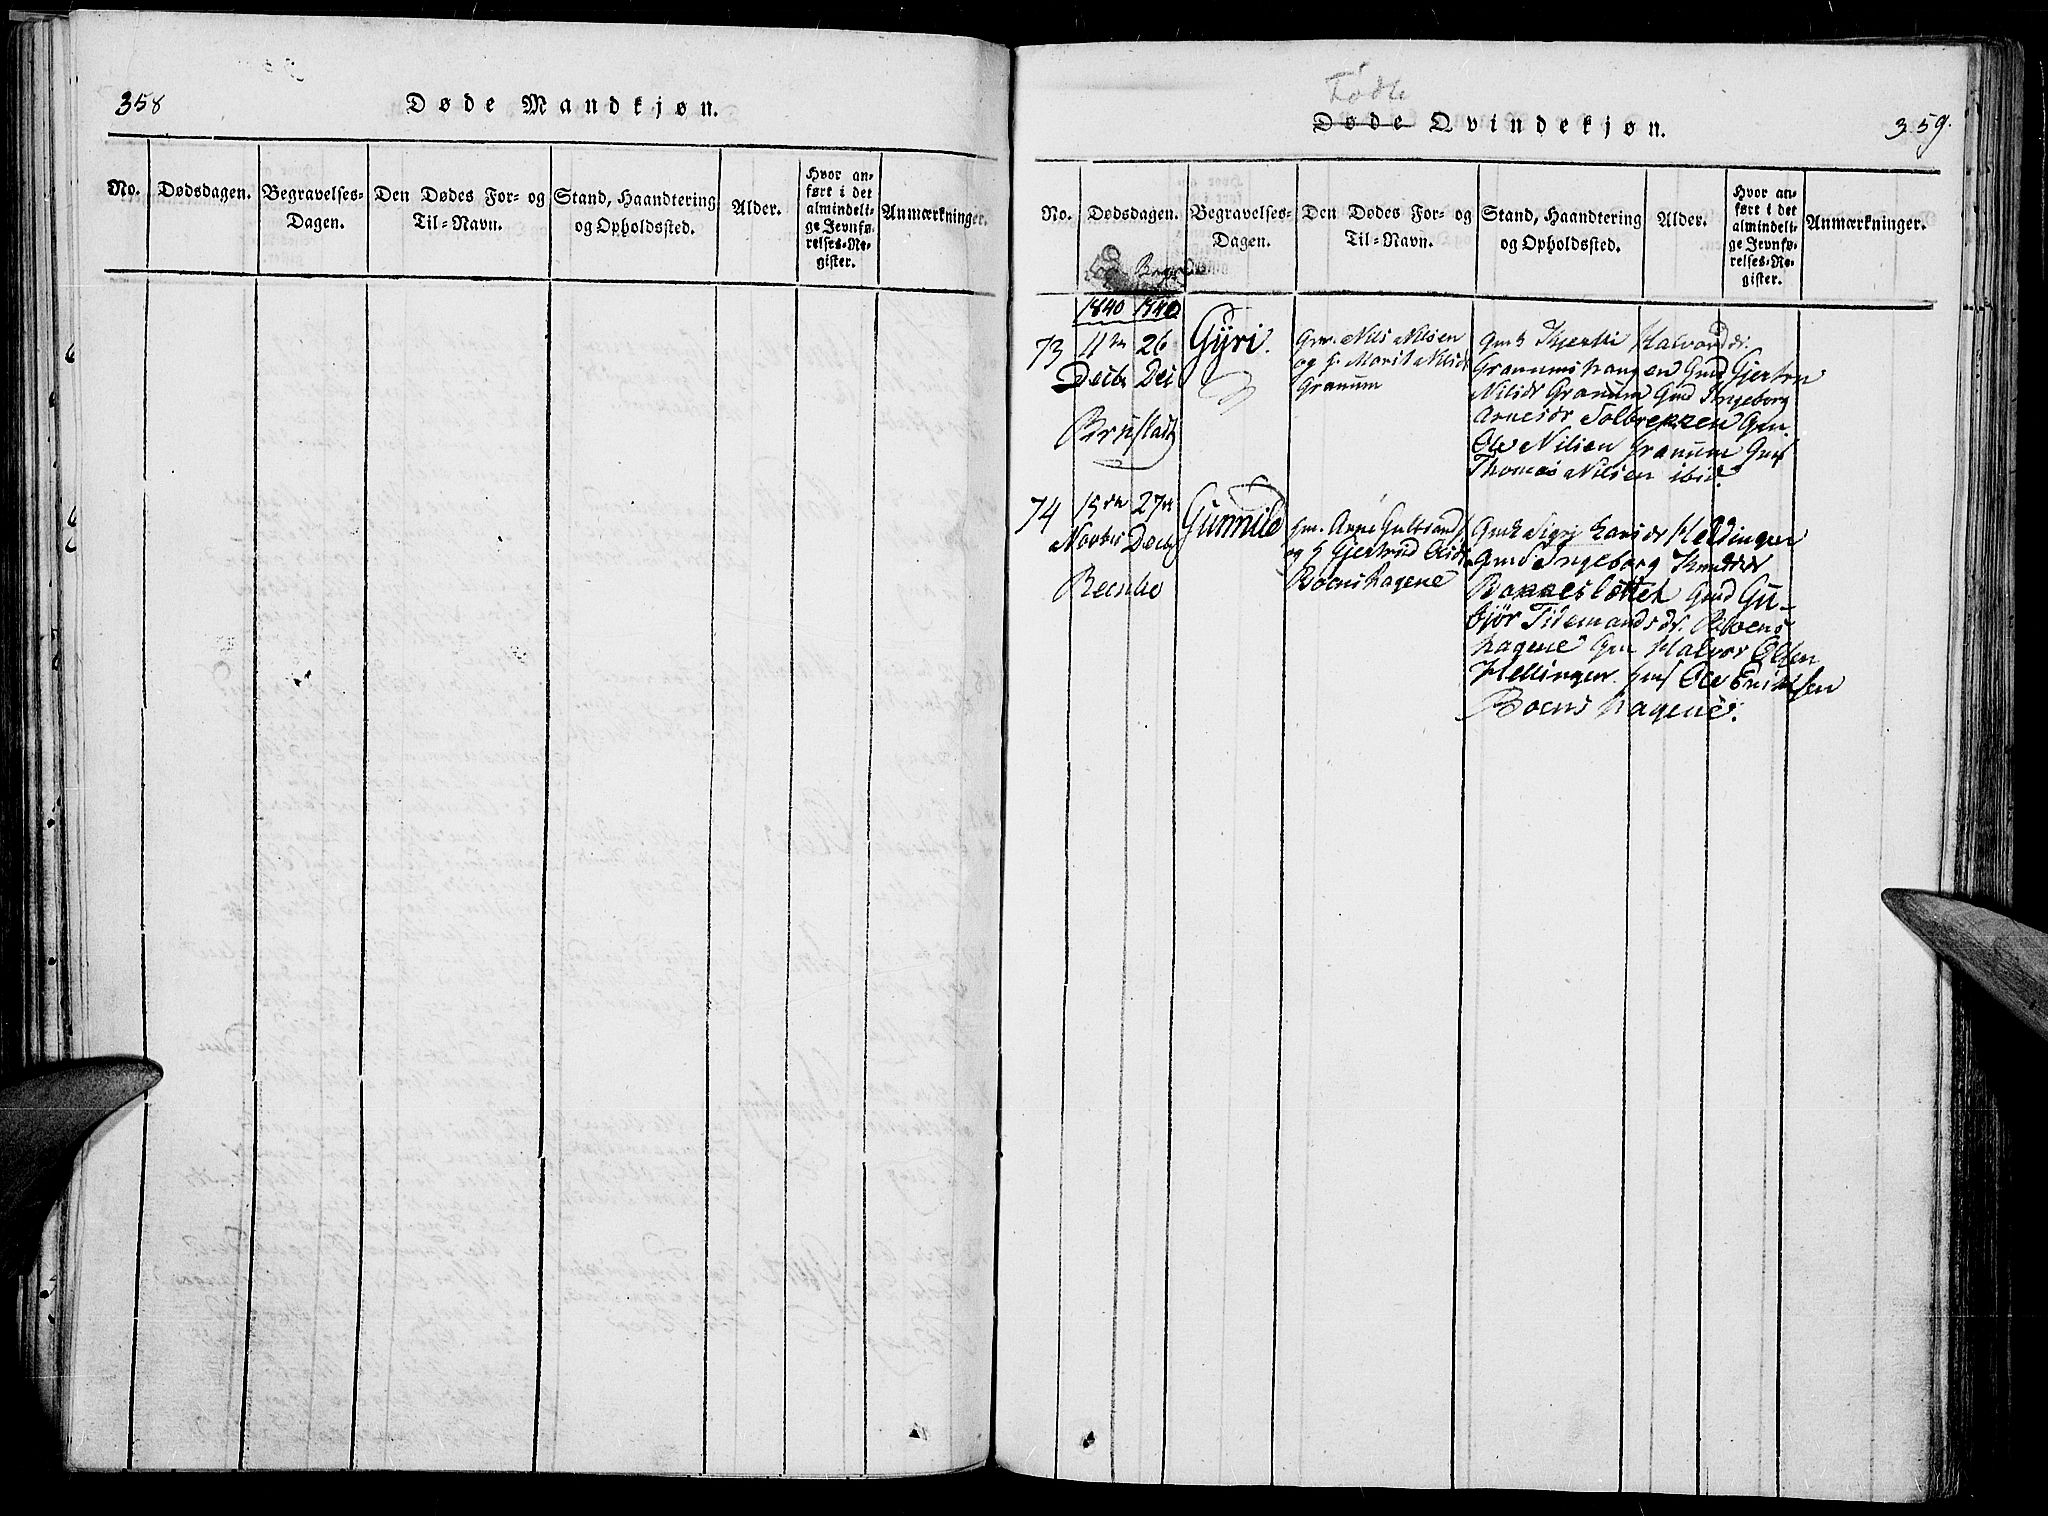 358
Døde Mandkjøn.
No.
Dødsdagen.
Begravelses-
Dagen.
Den Dødes For- og
Til-Navn.
Stand, Haandtering
og Opholdssted.
Alder.
Hvor an-
ført i det
almindeli-
ge Jevnfø-
relses-Re-
gister.
Anmærkninger.
Fødte
Døde Qvindekjøn.
359.
No.
Dødsdagen.
Begravelses-
Dagen.
Den Dødes For- og
Til-Navn.
Stand, Haandtering
og Opholdssted.
Alder.
Hvor an-
ført i det
almindeli-
ge Jevnfø-
relses-Re-
gister.
Anmærkninger.
1840 1840
73
11te 26
Decbr Dec
Gÿri.
Gm. Nils Nilsen
og H. Marit Nilsdr
Granum
Gmk Kjersti Halvordsdr.
Granumshangen Gmd
Nilsdr Granum Gmd Ingeborg
Arnesdr Gm.
Ole Nilsen Granum Gms
Thomas Nilsen ibid.
74
15de 27de
Novbr Decbr
Gunnild
Gm. Arne Gulbrands.
og H Gjertrud Olsdr
Boenshagene
Gmk Sigri Larsdr Hellingen
Gmd Ingeborg Knudsdr
Bakkesløttet Gmd Gu-
björ Tidemandsdr. Boens
hagene Gm Halvor Olsen
Hellingen. Gms Ole Eriksen
Boens hagene.